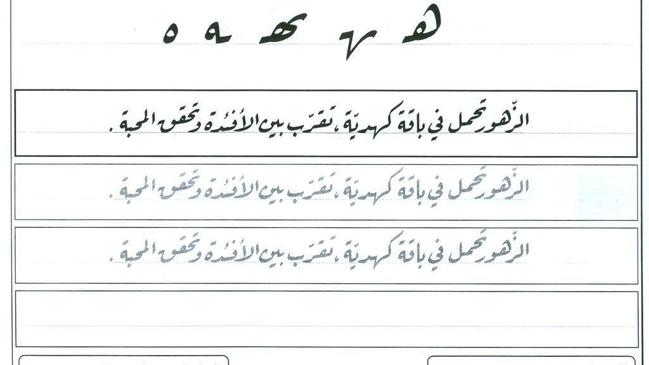 ه ہ ـهـ ـه ه
الزّهور تحمل في باقة كهديّة ، تقرّب بين الأفئدة وتحقق المحبة .
الزّهور تحمل في باقة كهديّة ، تقرّب بين الأفئدة وتحقق المحبة .
الزّهور تحمل في باقة كهديّة ، تقرّب بين الأفئدة وتحقق المحبة .